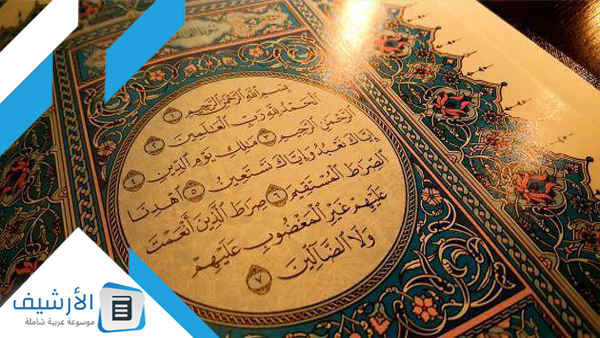 بِسْمِ اللَّهِ الرَّحْمَٰنِ الرَّحِيمِ ١
الْحَمْدُ لِلَّهِ رَبِّ الْعَالَمِينَ ٢
الرَّحْمَٰنِ الرَّحِيمِ ٣ مَالِكِ يَوْمِ الدِّينِ ٤
إِيَّاكَ نَعْبُدُ وَإِيَّاكَ نَسْتَعِينُ ٥ اهْدِنَا
الصِّرَاطَ الْمُسْتَقِيمَ ٦ صِرَاطَ الَّذِينَ أَنْعَمْتَ
عَلَيْهِمْ غَيْرِ الْمَغْضُوبِ عَلَيْهِمْ
وَلَا الضَّالِّينَ ٧
الأرشيف
موسوعة عربية شاملة